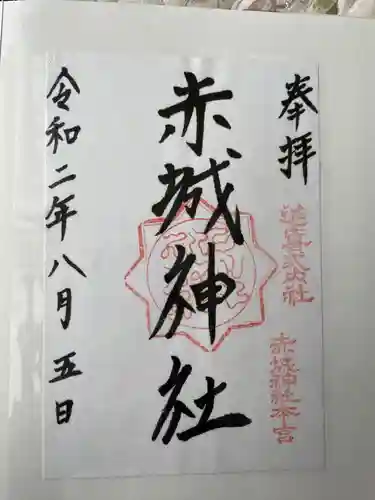 奉拝
延喜式内社
赤城神社本宮
赤城神社
令和二年八月五日